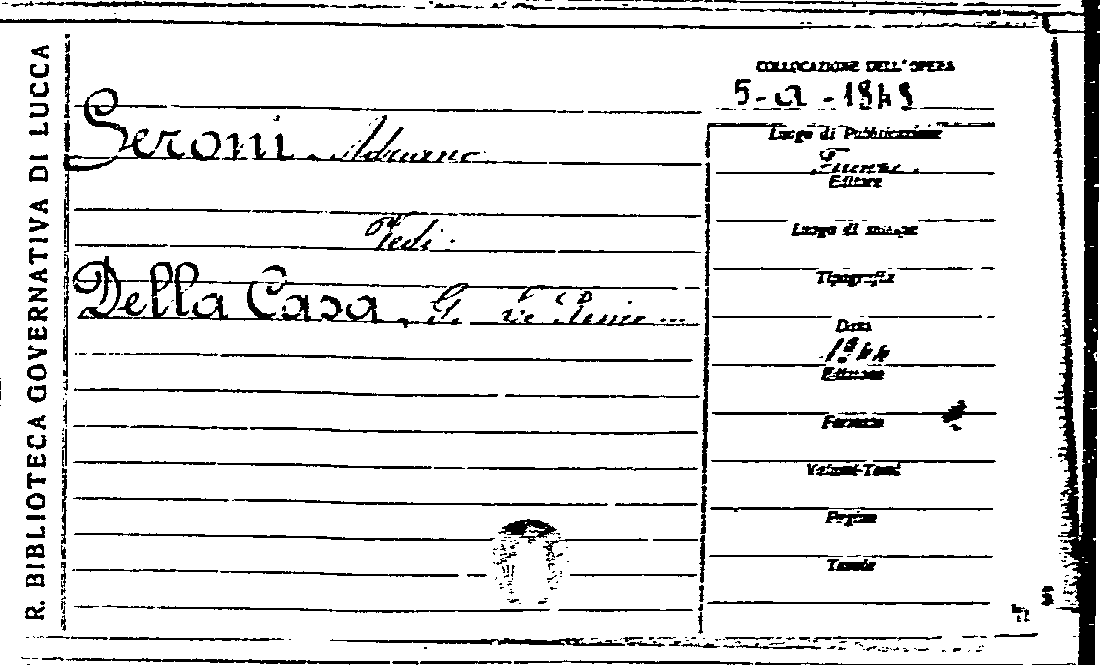 R. BIBLIOTECA GOVERNATIVA DI LUCCA
COLLOCAZIONE DELL'OPERA
Seroni. Adriano
Vedi.
Della Casa, G. Le Rime...
Luogo di Pubblicazione
Firenze.
Editore
Luogo di stampa
Tipografia
Data
1944
Edizione
Formato
Volumi-Tomi
Pagine
Tavole